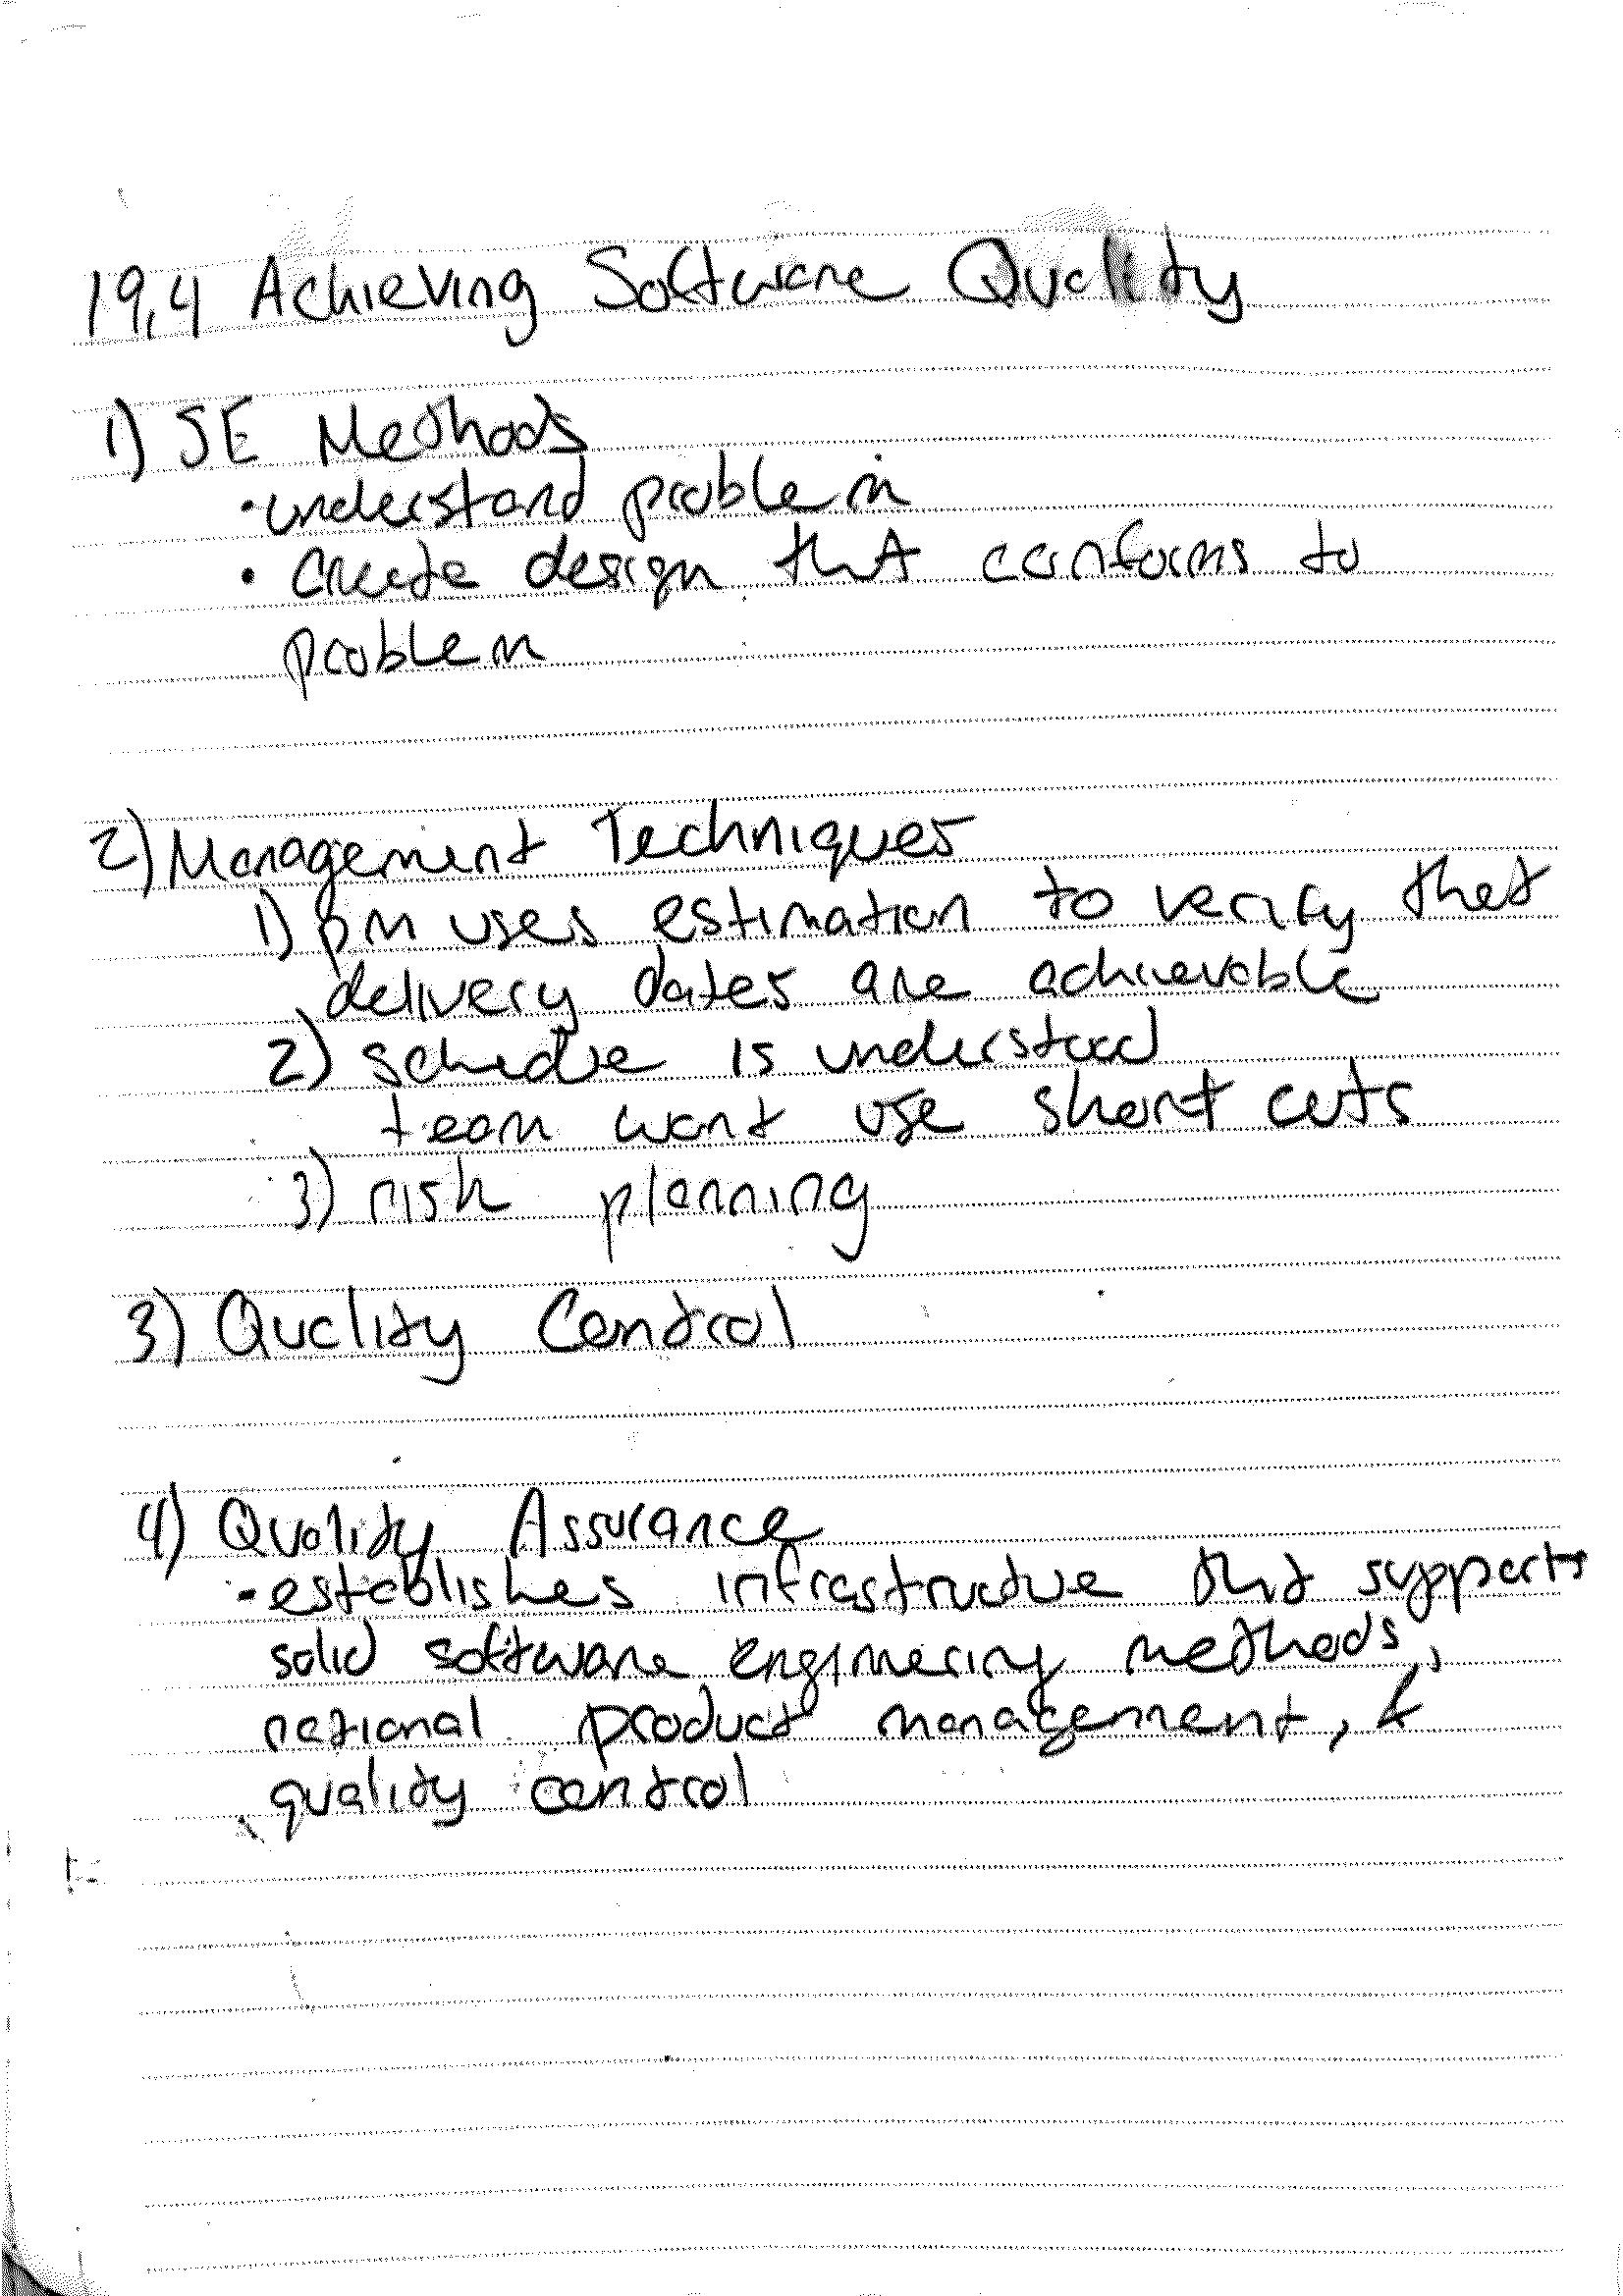 19,4 Achieving Software Quality
1) SE Methods
• understand problem
• create design that conforms to
problem
2) Management Techniques
1) PM uses estimation to verify that
delivery dates are achievable
2) schedule is understood
team wont use short cuts
3) risk planning
3) Quality Control
4) Quality Assurance
- establishes infrastructure that supports
solid software engineering methods,
rational product management, &
quality control